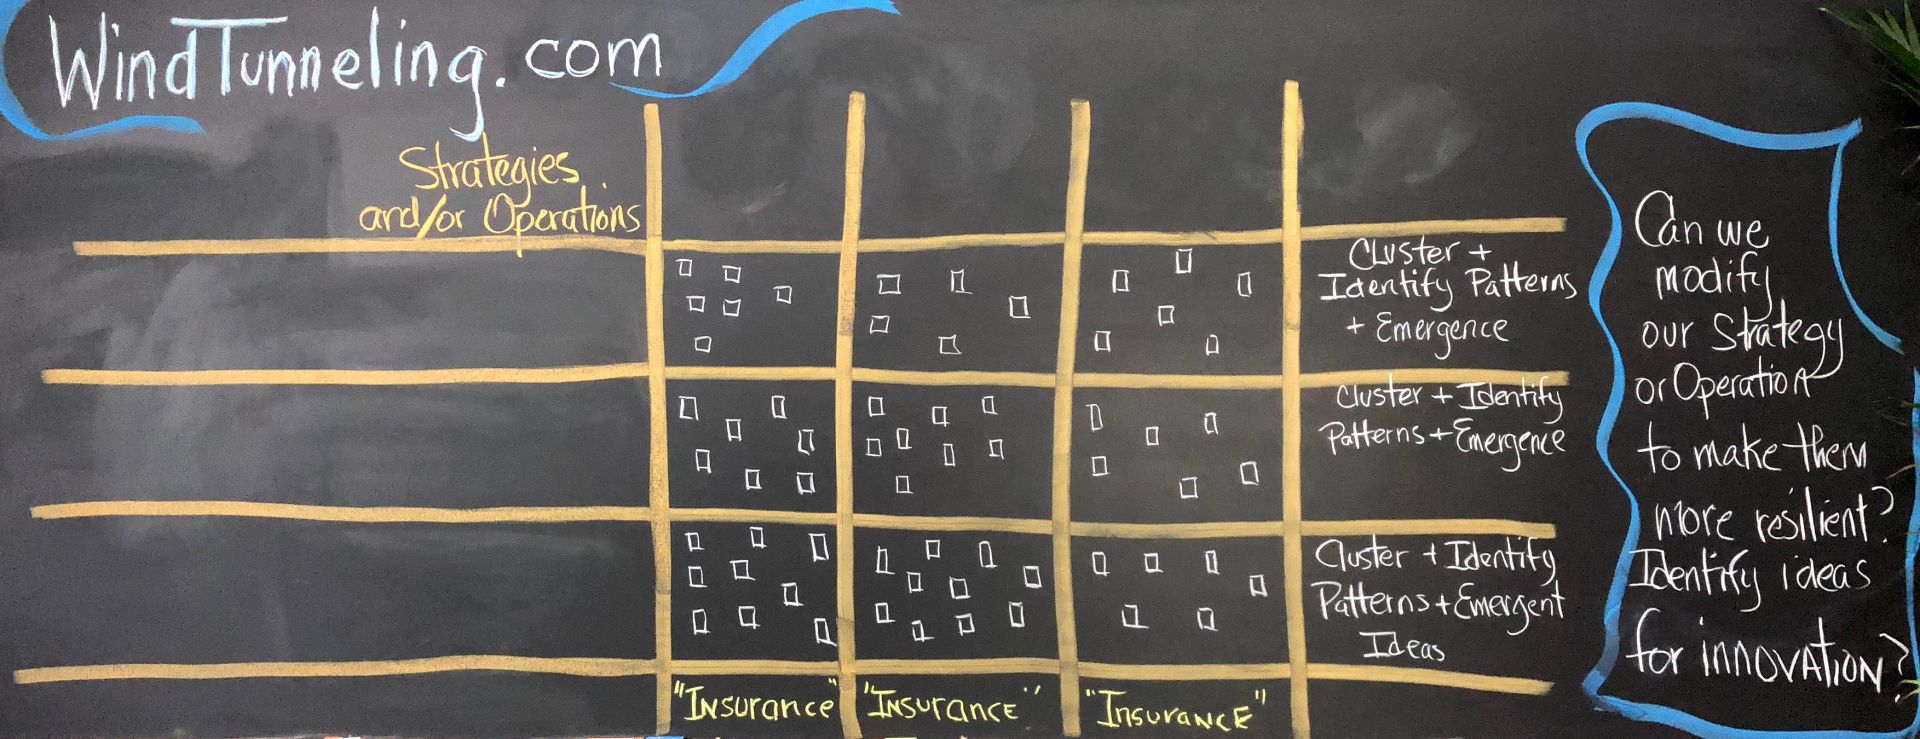 WindTunneling.com
Strategies
and/or Operations
Cluster +
Identify Patterns
+ Emergence
Cluster + Identify
Patterns + Emergence
Cluster + Identify
Patterns + Emergent
Ideas
"Insurance" "Insurance" "Insurance"
Can we
modify
our Strategy
or Operation
to make them
more resilient?
Identify ideas
for innovation?